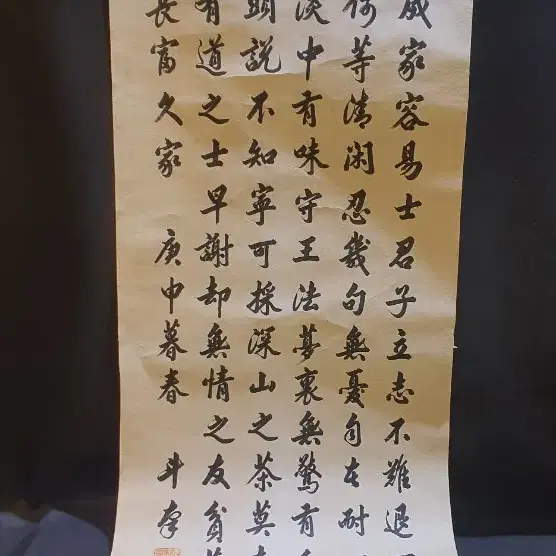 成家容易士君子立志不難退
何等清閑忍幾句無憂自在耐
淡中有味守王法夢裏無驚有
頭說不知寧可採深山之茶莫
有道之士早謝却無情之友貧
長富久家 庚申暮春 斗